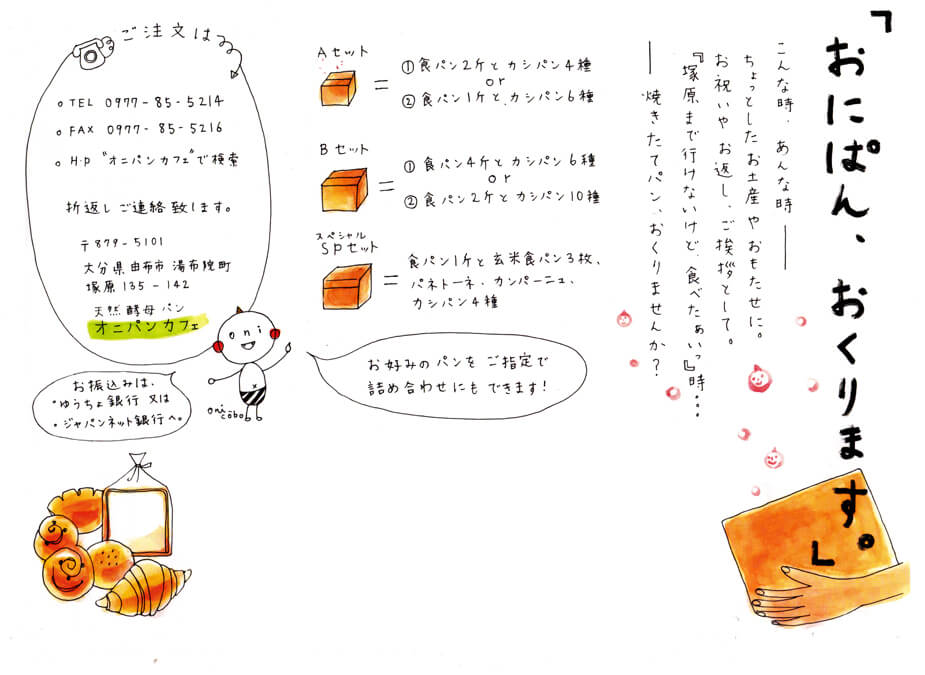 「おにぱん、おくります。」
こんな時、あんな時――
ちょっとしたお土産やおもたせに。
お祝いやお返し、ご挨拶として。
『塚原まで行けないけど、食べたぁいっ』時…
――焼きたてパン、おくりませんか？
Aセット
=
①食パン2ケとカシパン4種
or
②食パン1ケと、カシパン6種
Bセット
=
①食パン4ケとカシパン6種
or
②食パン2ケとカシパン10種
スペシャル
SPセット
=
食パン1ケと玄米食パン3枚、
パネトーネ・カンパーニュ、
カシパン4種
お好みのパンをご指定で
詰め合わせにもできます!
ご注文は
○TEL 0977-85-5214
○FAX 0977-85-5216
○H・P "オニパンカフェ"で検索
折返しご連絡致します。
〒879-5101
大分県由布市湯布院町
塚原135-142
天然酵母パン
オニパンカフェ
oni
oni
cobo
お振込みは、
・ゆうちょ銀行又は
・ジャパンネット銀行へ。